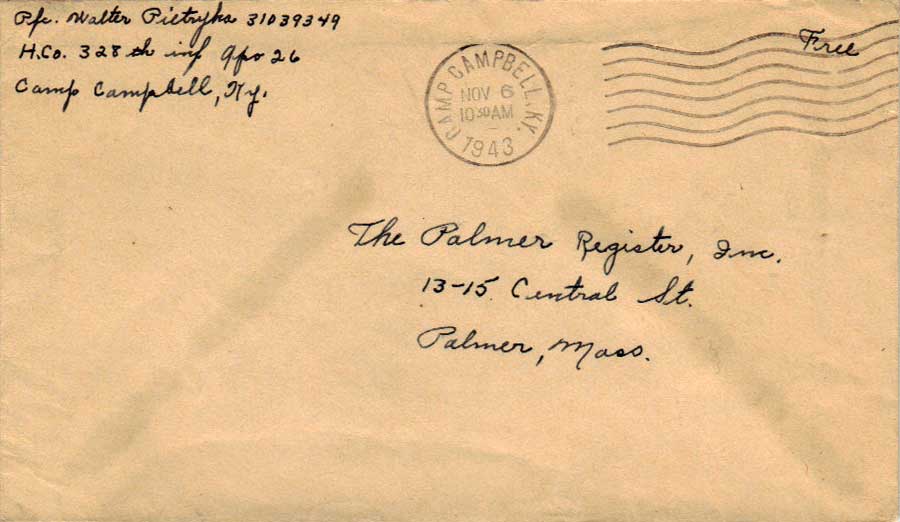 Pfc. Walter Pietryka 31039349
H.Co. 328th inf apo 26
Camp Campbell, Ky.
CAMP CAMPBELL, KY.
NOV 6
10 30 AM
1943
Free
The Palmer Register, Inc.
13-15 Central St.
Palmer, Mass.